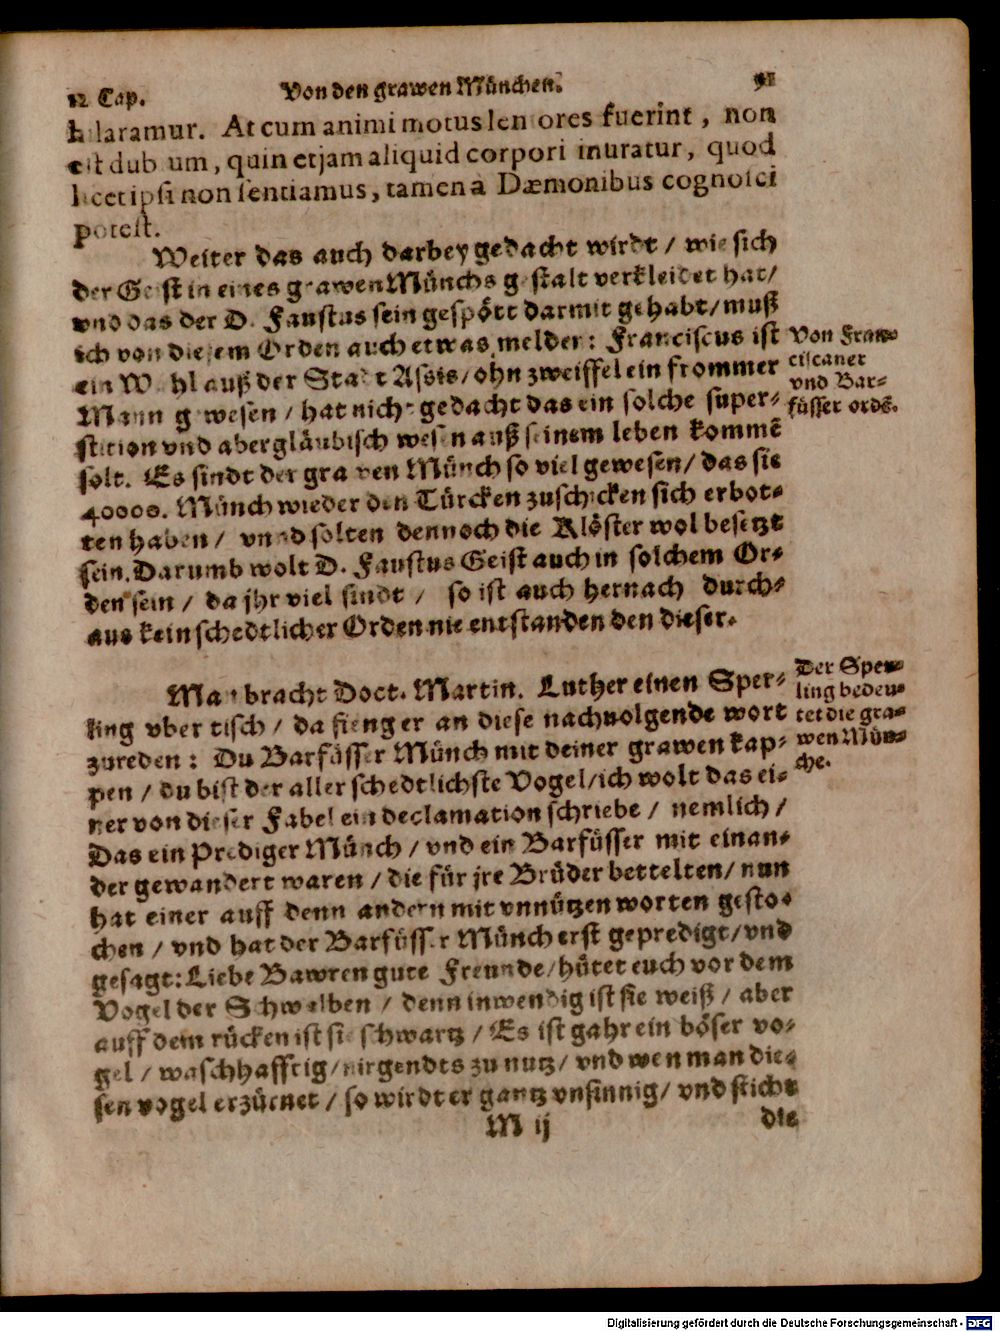 12 Cap. Von den grawen München. 91
hilaramur. At cum animi motus leniores fuerint, non
est dubium, quin etjam aliquid corpori inuratur, quod
licet ipsi non sentiamus, tamen a Dæmonibus cognosci
potest.
Weiter das auch darbey gedacht wirdt / wie sich
der Geist in eines grawen Münchs gestalt verkleidet hat/
vnd das der D. Faustus sein gespött darmit gehabt/ muß
ich von diesem Orden auch etwas melden: Franciscus ist
ein Wahl auß der Stadt Assis/ ohn zweiffel ein frommer
Mann gewesen / hat nicht gedacht das ein solche super-
stition vnd abergläubisch wesen auß seinem leben kommē
solt. Es sindt der grawen Münch so viel gewesen/ das sie
40000. Münch wieder den Türcken zuschicken sich erbot-
ten haben / vnnd solten dennoch die Klöster wol besetzt
sein. Darumb wolt D. Faustus Geist auch in solchem Or-
den sein / da jhr viel sindt / so ist auch hernach durch-
aus kein schedtlicher Orden nie entstanden den dieser.
Von Fran-
ciscaner
vnd Bar-
füsser ordē.
Man bracht Doct. Martin. Luther einen Sper-
ling vber tisch / da fieng er an diese nachuolgende wort
zureden: Du Barfüsser Münch mit deiner grawen kap-
pen / du bist der aller schedtlichste Vogel/ ich wolt das ei-
ner von dieser Fabel ein declamation schriebe / nemlich /
Das ein Prediger Münch / vnd ein Barfüsser mit einan-
der gewandert waren / die für jre Brüder bettelten/ nun
hat einer auff denn andern mit vnnützen worten gesto-
chen / vnd hat der Barfüsser Münch erst gepredigt/ vnd
gesagt: Liebe Bawren gute Freunde/ hütet euch vor dem
Vogel der Schwalben / denn inwendig ist sie weiß / aber
auff dem rücken ist sie schwartz / Es ist gahr ein böser vo-
gel / waschhafftig/ nirgendts zu nutz/ vnd wen man die-
sen vogel erzürnet / so wirdt er gantz vnsinnig/ vnd sticht
Der Sper-
ling bedeu-
tet die gra-
wen Mün-
che.
M ij die
Digitalisierung gefördert durch die Deutsche Forschungsgemeinschaft - DFG